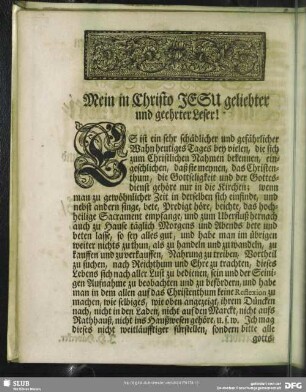 Mein in Christo JESU geliebter
und geehrter Leser!
ES ist ein sehr schädlicher und gefährlicher
Wahn heutiges Tages bey vielen, die sich
zum Christlichen Nahmen bekennen, ein-
geschlichen, daß sie meynen, das Christen-
thum, die Gottseligkeit und der Gottes-
dienst gehöre nur in die Kirchen; wenn
man zu gewöhnlicher Zeit in derselben sich einfinde, und
nebst andern singe, bete, Predigt höre, beichte, das hoch-
heilige Sacrament empfange, und zum Uberfluß hernach
auch zu Hause täglich Morgens und Abends bete und
beten lasse, so sey alles gut, und habe man im übrigen
weiter nichts zu thun, als zu handeln und zu wandeln, zu
kauffen und zu verkauffen, Nahrung zu treiben, Vortheil
zu suchen, nach Reichthum und Ehre zu trachten, dieses
Lebens sich nach aller Lust zu bedienen, sein und der Seini-
gen Aufnahme zu beobachten und zu befördern, und habe
man in dem allen auf das Christenthum keine Reflexion zu
machen, wie selbiges, wie oben angezeigt, ihrem Düncken
nach, nicht in den Laden, nicht auf den Marckt, nicht aufs
Rathhauß, nicht ins Hauswesen gehöre, u. s. w. Ich mag
dieses nicht weitläufftiger fürstellen, sondern bitte alle
gotts-
SLUB
DFG